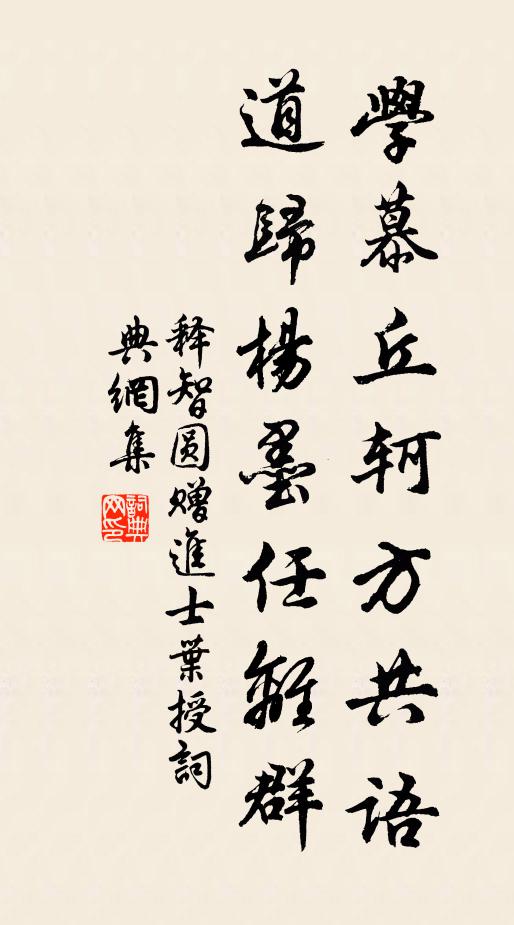 學慕丘轲方共语
道歸楊墨任離群
释智圆赠進士葉授詞
典網集
詞典网印